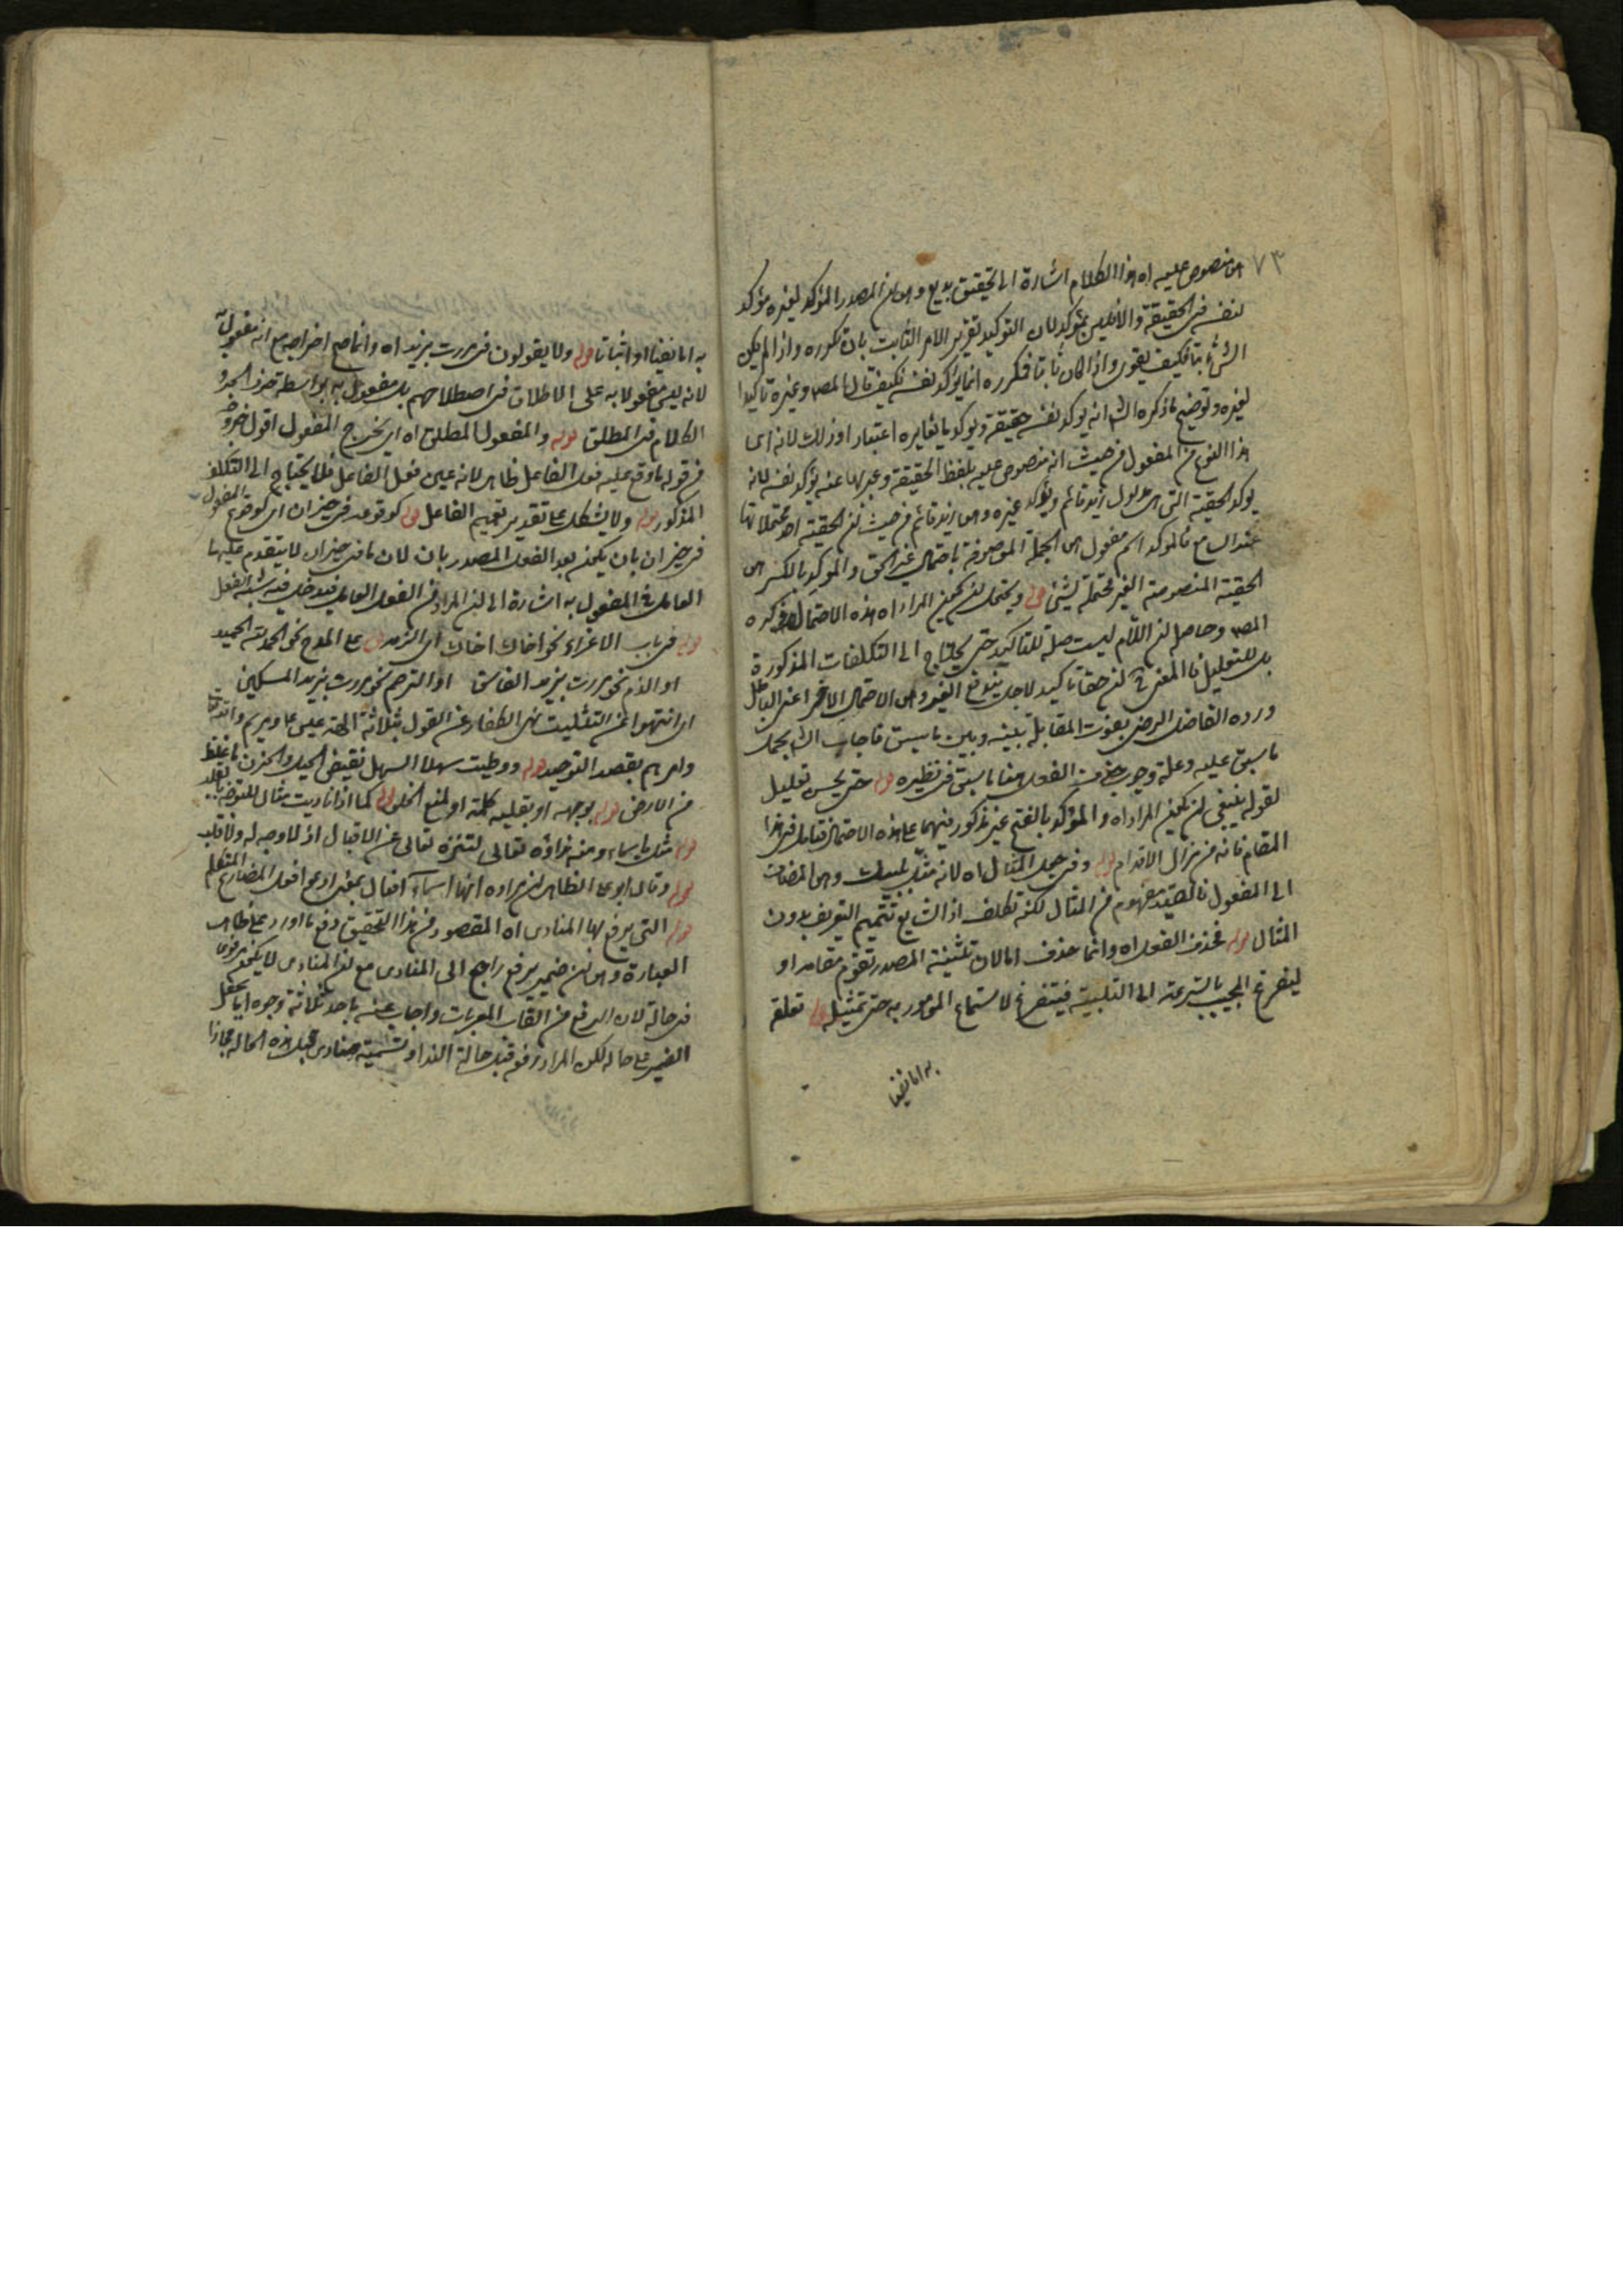 ٧٣
منصوص عليه اه هذا الكلام اشارة الى تحقيق بديع وهو ان المصدر المؤكد لغيره مؤكد
لنفسه في الحقيقة والا فليس بمؤكد لان التوكيد تقرير الامر الثابت بان تكرره واذا لم يكن
الشئ ثابتا فكيف يقوى واذا كان ثابتا فكرره انما يؤكد نفسه فكيف قال المص وغيره تاكيدا
لغيره وتوضيح ما ذكره الش انه يوكد نفسه حقيقة ويوكد ما يغايره اعتبارا وذلك لانه اى
هذا النوع من المفعول من حيث انه منصوص عليه بلفظ الحقيقة وعبر بها عنه يؤكد نفسه لانه
يوكد الحقية التى هى مدلول زيد قائم ويؤكد غيره وهى زيد قائم من حيث ان الحقية احد محتملاتها
عند السامع فالموكد اسم مفعول هى الجملة الموصوفة باحتمال غير الحق والموكد بالكسر هى
الحقية المنصوصة الغير محتملة لشئ قوله ويحتمل ان يكون المراد اه هذه الاحتمال ذكره
المص وحاصله ان اللام ليست صلة للتاكيد حتى يحتاج الى التكلفات المذكورة
بل للتعليل فالمعنى ح ان حقا تاكيد لاجل يندفع الغير وهى الاحتمال الاخر اعنى الباطل
ورده الفاضل الرضى بفوت المقابلة بينه وبين ما سبق فاجاب الش بحمل
ما سبق عليه وعلة وجوب حذف الفعل هنا ما سبق فى نظيره قوله حتى يحسن تعليل
لقوله ينبغى ان يكون المراد اه والمؤكد بالفتح غير مذكور فيهما على هذه الاحتمال فتامل فى هذا
المقام فانه من مزال الاقدام قوله وفى جعل المثال اه لانه مثل لبيك وهى المضاف
الى المفعول فالتقييد مفهوم من المثال لكنه تكلف اذ الشايع تتميم التعريف بدون
المثال قوله فحذف الفعل اه وانما حذف اما لان تثنية المصدر تقوم مقامه او
ليفرغ المجيب بالسرعة الى التلبية فيتفرغ لاستماع المامور به حتى تمثيله قوله تعلقه
به اما نفيا
به اما نفيا او اثباتا قوله ولا يقولون فى مررت بزيد اه وانما صح اخراجه مع انه مفعول به
لانه ليس مفعولا به على الاطلاق فى اصطلاحهم بل مفعول به بواسطة حرف الجر و
الكلام فى المطلق قوله والمفعول المطلق اه اى يخرج المفعول اقول خروجه
من قوله ما وقع عليه فعل الفاعل ظاهر لانه عين فعل الفاعل فلا يحتاج الى التكلف
المذكور قوله ولا يشكل على تقدير تعميم الفاعل قوله كوقوعه فى حيز ان اى كوقوع المفعول
فى حيز ان بان يكون بعد الفعل المصدر بان لان ما فى حيز ان لا يتقدم عليها
العامل فى المفعول به اشارة الى ان المراد من الفعل العامل فيدخل فيه شبه الفعل
قوله فى باب الاغراء نحو اخاك اخاك اى الزمه قوله على المدح نحو الحمد لله الحميد
او الذم نحو مررت بزيد الفاسق او الترحم نحو مررت بزيد المسكين
اى انتهوا عن التثليث نهى الكفار عن القول بثلاثة الهة عيسى وامه مريم والله تعالى
وامرهم بقصد التوحيد قوله ووطيت سهلا السهل نقيض الجبل والحزن ما غلظ
من الارض قوله بوجهه او بقلبه كلمة او لمنع الخلو قوله كما اذا ناديت مثال للتوجه بالقلب
قوله مثل يا سماء ومنه نداؤه تعالى لتنزه تعالى عن الاقبال اذ لا وجه له ولا قلب
قوله وقال ابو على الظاهر ان مراده انها اسماء افعال بمعنى ادعو افعل المضارع المتكلم
قوله التى يرفع بها المنادى اه المقصود من هذا التحقيق دفع ما اورد على ظاهر
العبارة وهو ان ضمير يرفع راجع الى المنادى مع ان المنادى لا يكون مرفوعا
فى حالة لان الرفع من القاب المعربات واجاب عنه باحد ثلاثة وجوه اما بجعل
الضمير على حاله لكن المراد رفعه قبل حالة النداء وتسميته منادى قبل هذه الحالة مجازا